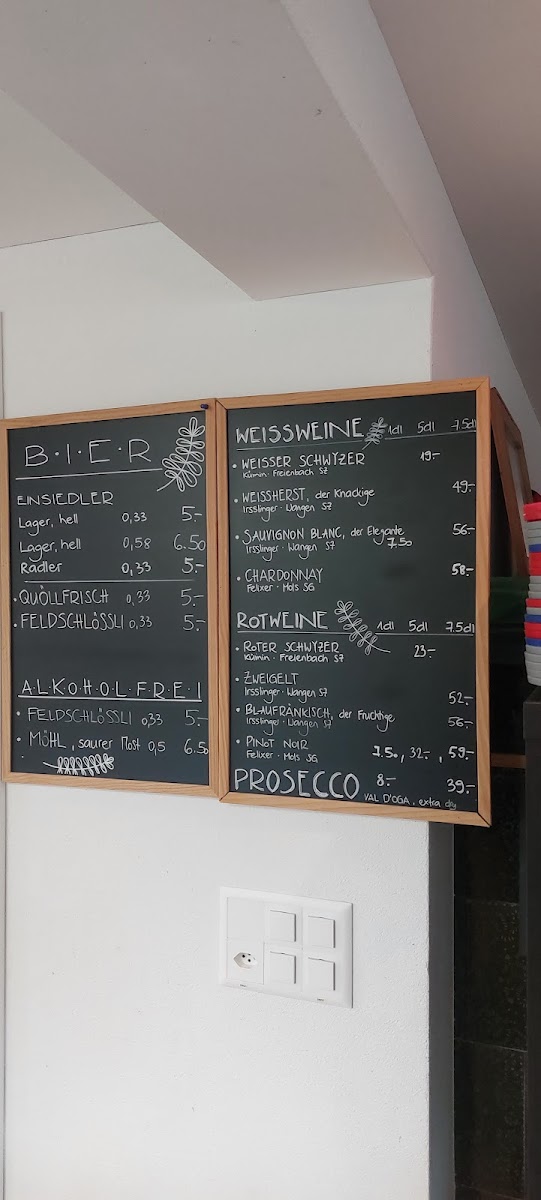 B·I·E·R
EINSIEDLER
Lager, hell 0,33 5.-
Lager, hell 0,58 6.50
Radler 0,33 5.-
• QUÖLLFRISCH 0,33 5.-
• FELDSCHLÖSSLI 0,33 5.-
A·L·K·O·H·O·L·F·R·E·I
• FELDSCHLÖSSLI 0,33 5.-
• MÖHL, saurer Most 0,5 6.50
WEISSWEINE 1dl 5dl 7.5dl
• WEISSER SCHWYZER 19.-
Kümin · Freienbach SZ
• WEISSHERST, der Knackige 49.-
Irsslinger · Wangen SZ
• SAUVIGNON BLANC, der Elegante 56.-
Irsslinger · Wangen SZ 7.50
• CHARDONNAY 58.-
Felixer · Mols SG
ROTWEINE 1dl 5dl 7.5dl
• ROTER SCHWYZER 23.-
Kümin · Freienbach SZ
• ZWEIGELT
Irsslinger · Wangen SZ 52.-
• BLAUFRÄNKISCH, der Fruchtige 56.-
Irsslinger · Wangen SZ
• PINOT NOIR 7.50, 32.-, 59.-
Felixer · Mols SG
PROSECCO 8.- 39.-
VAL D'OGA, extra dry